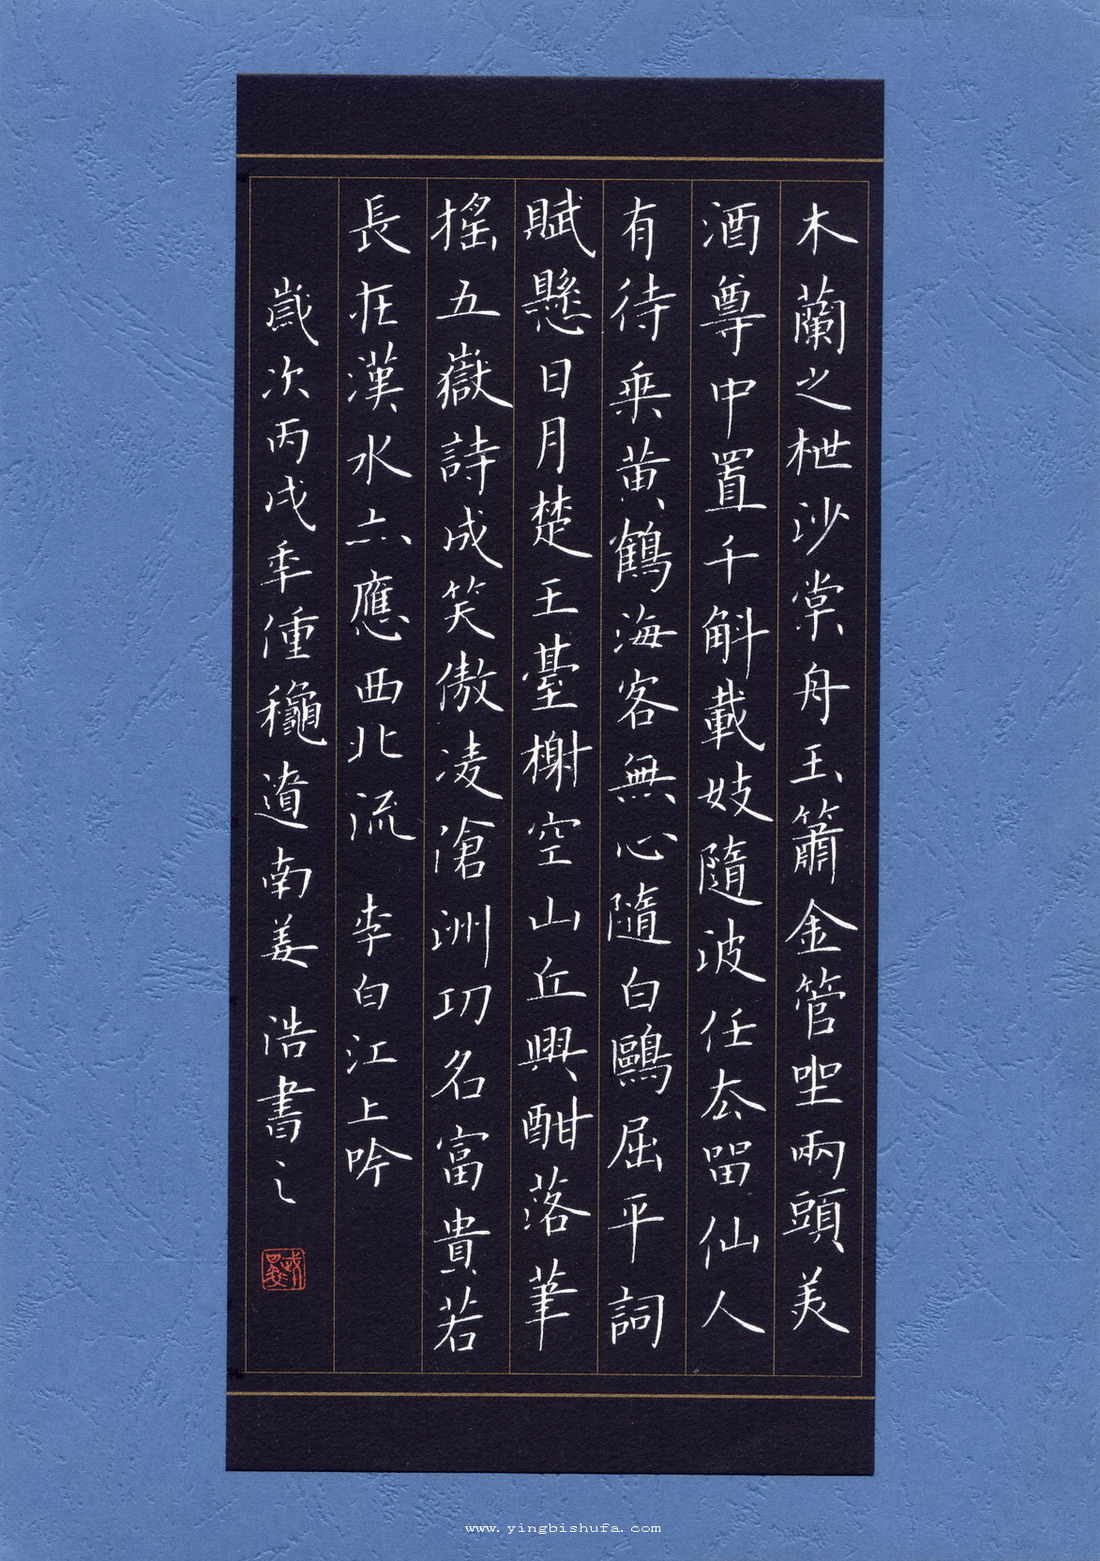 木蘭之枻沙棠舟玉簫金管坐兩頭美
酒尊中置千斛載妓隨波任去留仙人
有待乘黃鶴海客無心隨白鷗屈平詞
賦懸日月楚王臺榭空山丘興酣落筆
搖五嶽詩成笑傲凌滄洲功名富貴若
長在漢水亦應西北流 李白江上吟
歲次丙戌秊偅龝南姜浩書之
www.yingbishufa.com